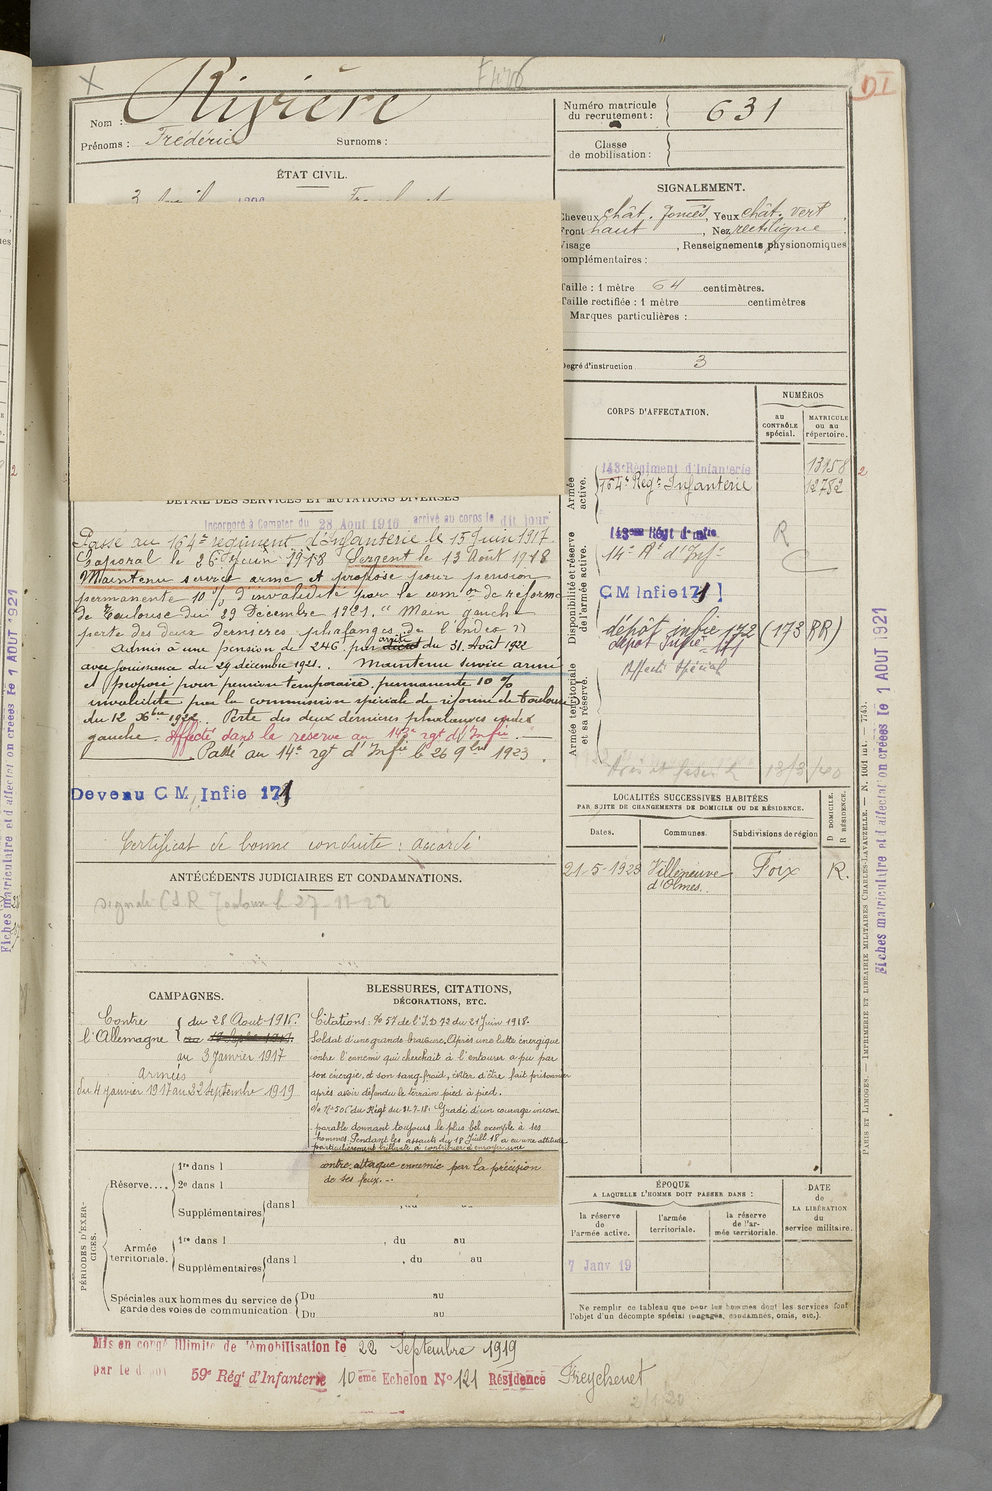 Rivière
Nom :
Prénoms : Frédéric Surnoms :
Numéro matricule
du recrutement : 631
Classe
de mobilisation :
ÉTAT CIVIL.
SIGNALEMENT.
Cheveux chât. foncés, Yeux chât. vert
Front haut, Nez rectiligne
Visage , Renseignements physionomiques
complémentaires :
Taille : 1 mètre 64 centimètres.
Taille rectifiée : 1 mètre centimètres
Marques particulières :
Degré d'instruction 3
DÉTAIL DES SERVICES ET MUTATIONS DIVERSES
Incorporé à Compter du 28 Aout 1916 arrivé au corps le dit jour
Passé au 164e régiment d'Infanterie le 15 Juin 1917.
Caporal le 26 1918 Sergent le 13 Août 1918
Maintenu service armé et proposé pour pension
permanente 10 % d'invalidité par la comon de réforme
de Toulouse du 29 Décembre 1921. "Main gauche
perte des deux dernières phalanges de l'index"
Admis à une pension de 246 par arrêté du 31 Août 1922
avec jouissance du 29 décembre 1921. Maintenu service armé
et proposé pour pension temporaire permanente 10 %
invalidité par la commission spéciale de réforme de Toulouse
du 12 Xbre 1922. Perte des deux dernières phalanges index
gauche. Affecté dans la réserve au 143e rgt d'Infie
Passé au 14e rgt d'Infie le 26 9bre 1923.
Devenu C M Infie 171
Certificat de bonne conduite : accordé
ANTÉCÉDENTS JUDICIAIRES ET CONDAMNATIONS.
signalé CSR Toulouse le 27-11-22
CORPS D'AFFECTATION.
NUMÉROS
au
CONTRÔLE
spécial.
MATRICULE
ou au
répertoire.
Armée
active.
143e Régiment d'Infanterie 13158
164e Régt Infanterie 12782
Disponibilité et réserve
de l'armée active.
143eme Régt d'Infie
14e Rt d'Infie
C M Infie 171
dépôt infie 172 (173 RR)
dépôt Infie 171
Affecté Spécial
Armée territoriale
et sa réserve.
LOCALITÉS SUCCESSIVES HABITÉES
PAR SUITE DE CHANGEMENTS DE DOMICILE OU DE RÉSIDENCE.
D DOMICILE.
R RÉSIDENCE.
Dates. Communes. Subdivisions de région
21-5-1923 Villeneuve Foix R.
d'Olmes.
CAMPAGNES.
Contre du 28 Aout 1916.
l'Allemagne
au 3 janvier 1917
armées
du 4 janvier 1917 au 22 Septembre 1919
BLESSURES, CITATIONS,
DÉCORATIONS, ETC.
Citations: % 57 de l'I.D 72 du 21 Juin 1918.
Soldat d'une grande bravoure. Après une lutte énergique
contre l'ennemi qui cherchait à l'entourer a pu par
son énergie et son sang froid, éviter d'être fait prisonnier
après avoir défendu le terrain pied à pied.
% No 506 du Régt du 31.7.18. Gradé d'un courage incom-
parable donnant toujours le plus bel exemple à ses
hommes. Pendant les assauts du 18 Juill. 18 a eu une attitude
particulièrement brillante a contribué à enrayer une
contre attaque ennemie par la précision
de ses feux...
PÉRIODES D'EXER-
CICES.
Réserve.... 1re dans l
2e dans l
Supplémentaires dans l
Armée
territoriale. 1re dans l , du au
Supplémentaires dans l , du au
Spéciales aux hommes du service de
garde des voies de communication. Du au
Du au
ÉPOQUE
A LAQUELLE L'HOMME DOIT PASSER DANS :
la réserve
de
l'armée active.
l'armée
territoriale.
la réserve
de l'ar-
mée territoriale.
DATE
de
LA LIBÉRATION
du
service militaire.
7 Janv 19
Ne remplir ce tableau que pour les hommes dont les services font
l'objet d'un décompte spécial (engagés, condamnés, omis, etc.).
Mis en congé illimité de démobilisation le 22 Septembre 1919
par le 59e Régt d'Infanterie 10eme Echelon No 121 Résidence Freychenet
2/1/20
PARIS ET LIMOGES. — IMPRIMERIE ET LIBRAIRIE MILITAIRES CHARLES-LAVAUZELLE. — N. 1001 int. — 7743.
Fiches matriculaire et d'affectation créées le 1 AOUT 1921
Fiches matriculaire et d'affectation créées le 1 AOUT 1921